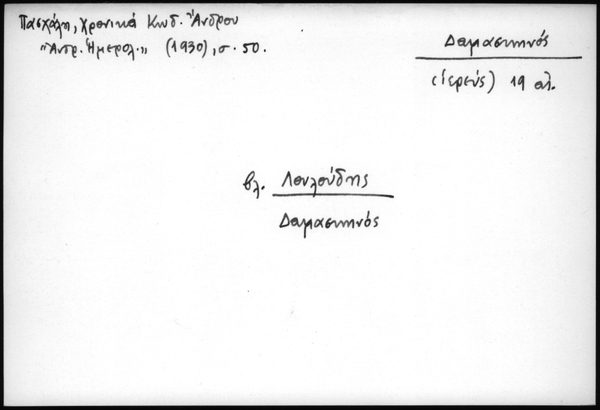 Πασχάλη, Χρονικά Κωδ. Ἄνδρου
"Ἀνδρ. Ἡμερολ.," (1930), σ. 50.
Δαμασκηνός
(ἱερεύς) 19 αἰ.
βλ. Λουλούδης
Δαμασκηνός